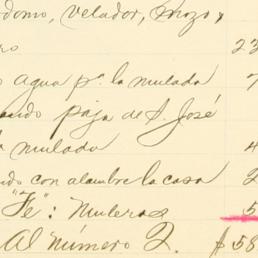 domo, velador, mozo,
ro 23
agua pª. la mulada 7
ando paja de S. José
mulada 4
ndo con alambre la casa 2
"Fe": Muleros 5
Al número 2. $58